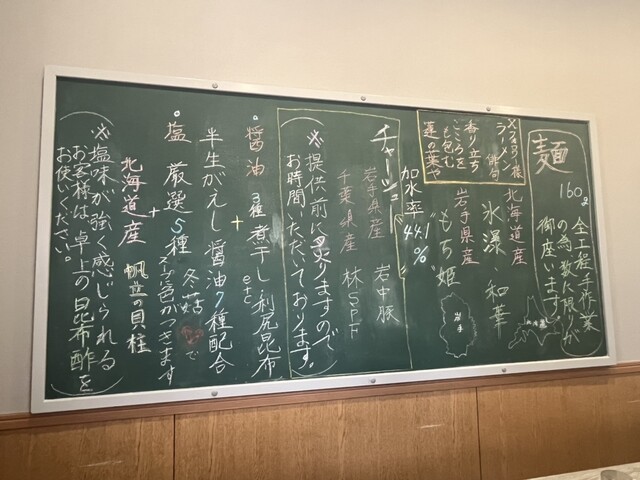 麺
160g
全工程手作業
の為、数に限りが
御座います。
北海道産
氷瀑・和華
岩手県産
"もち姫"
加水率44.1%
岩手
ラ 俳句
香り立ち
こころを
も包む
蓮の葉や
チャーシュー
岩手県産 岩中豚
千葉県産 林SPF
(※提供前に炙りますので
お時間いただいております。)
・醤油 3種煮干し 利尻昆布
etc
+
半生がえし 醤油7種配合
・塩 厳選5種 冬菇 で
スープに色がつきます
+
北海道産 帆立の貝柱
(※塩味が強く感じられる
お客様は、卓上の昆布酢を
お使いください。)